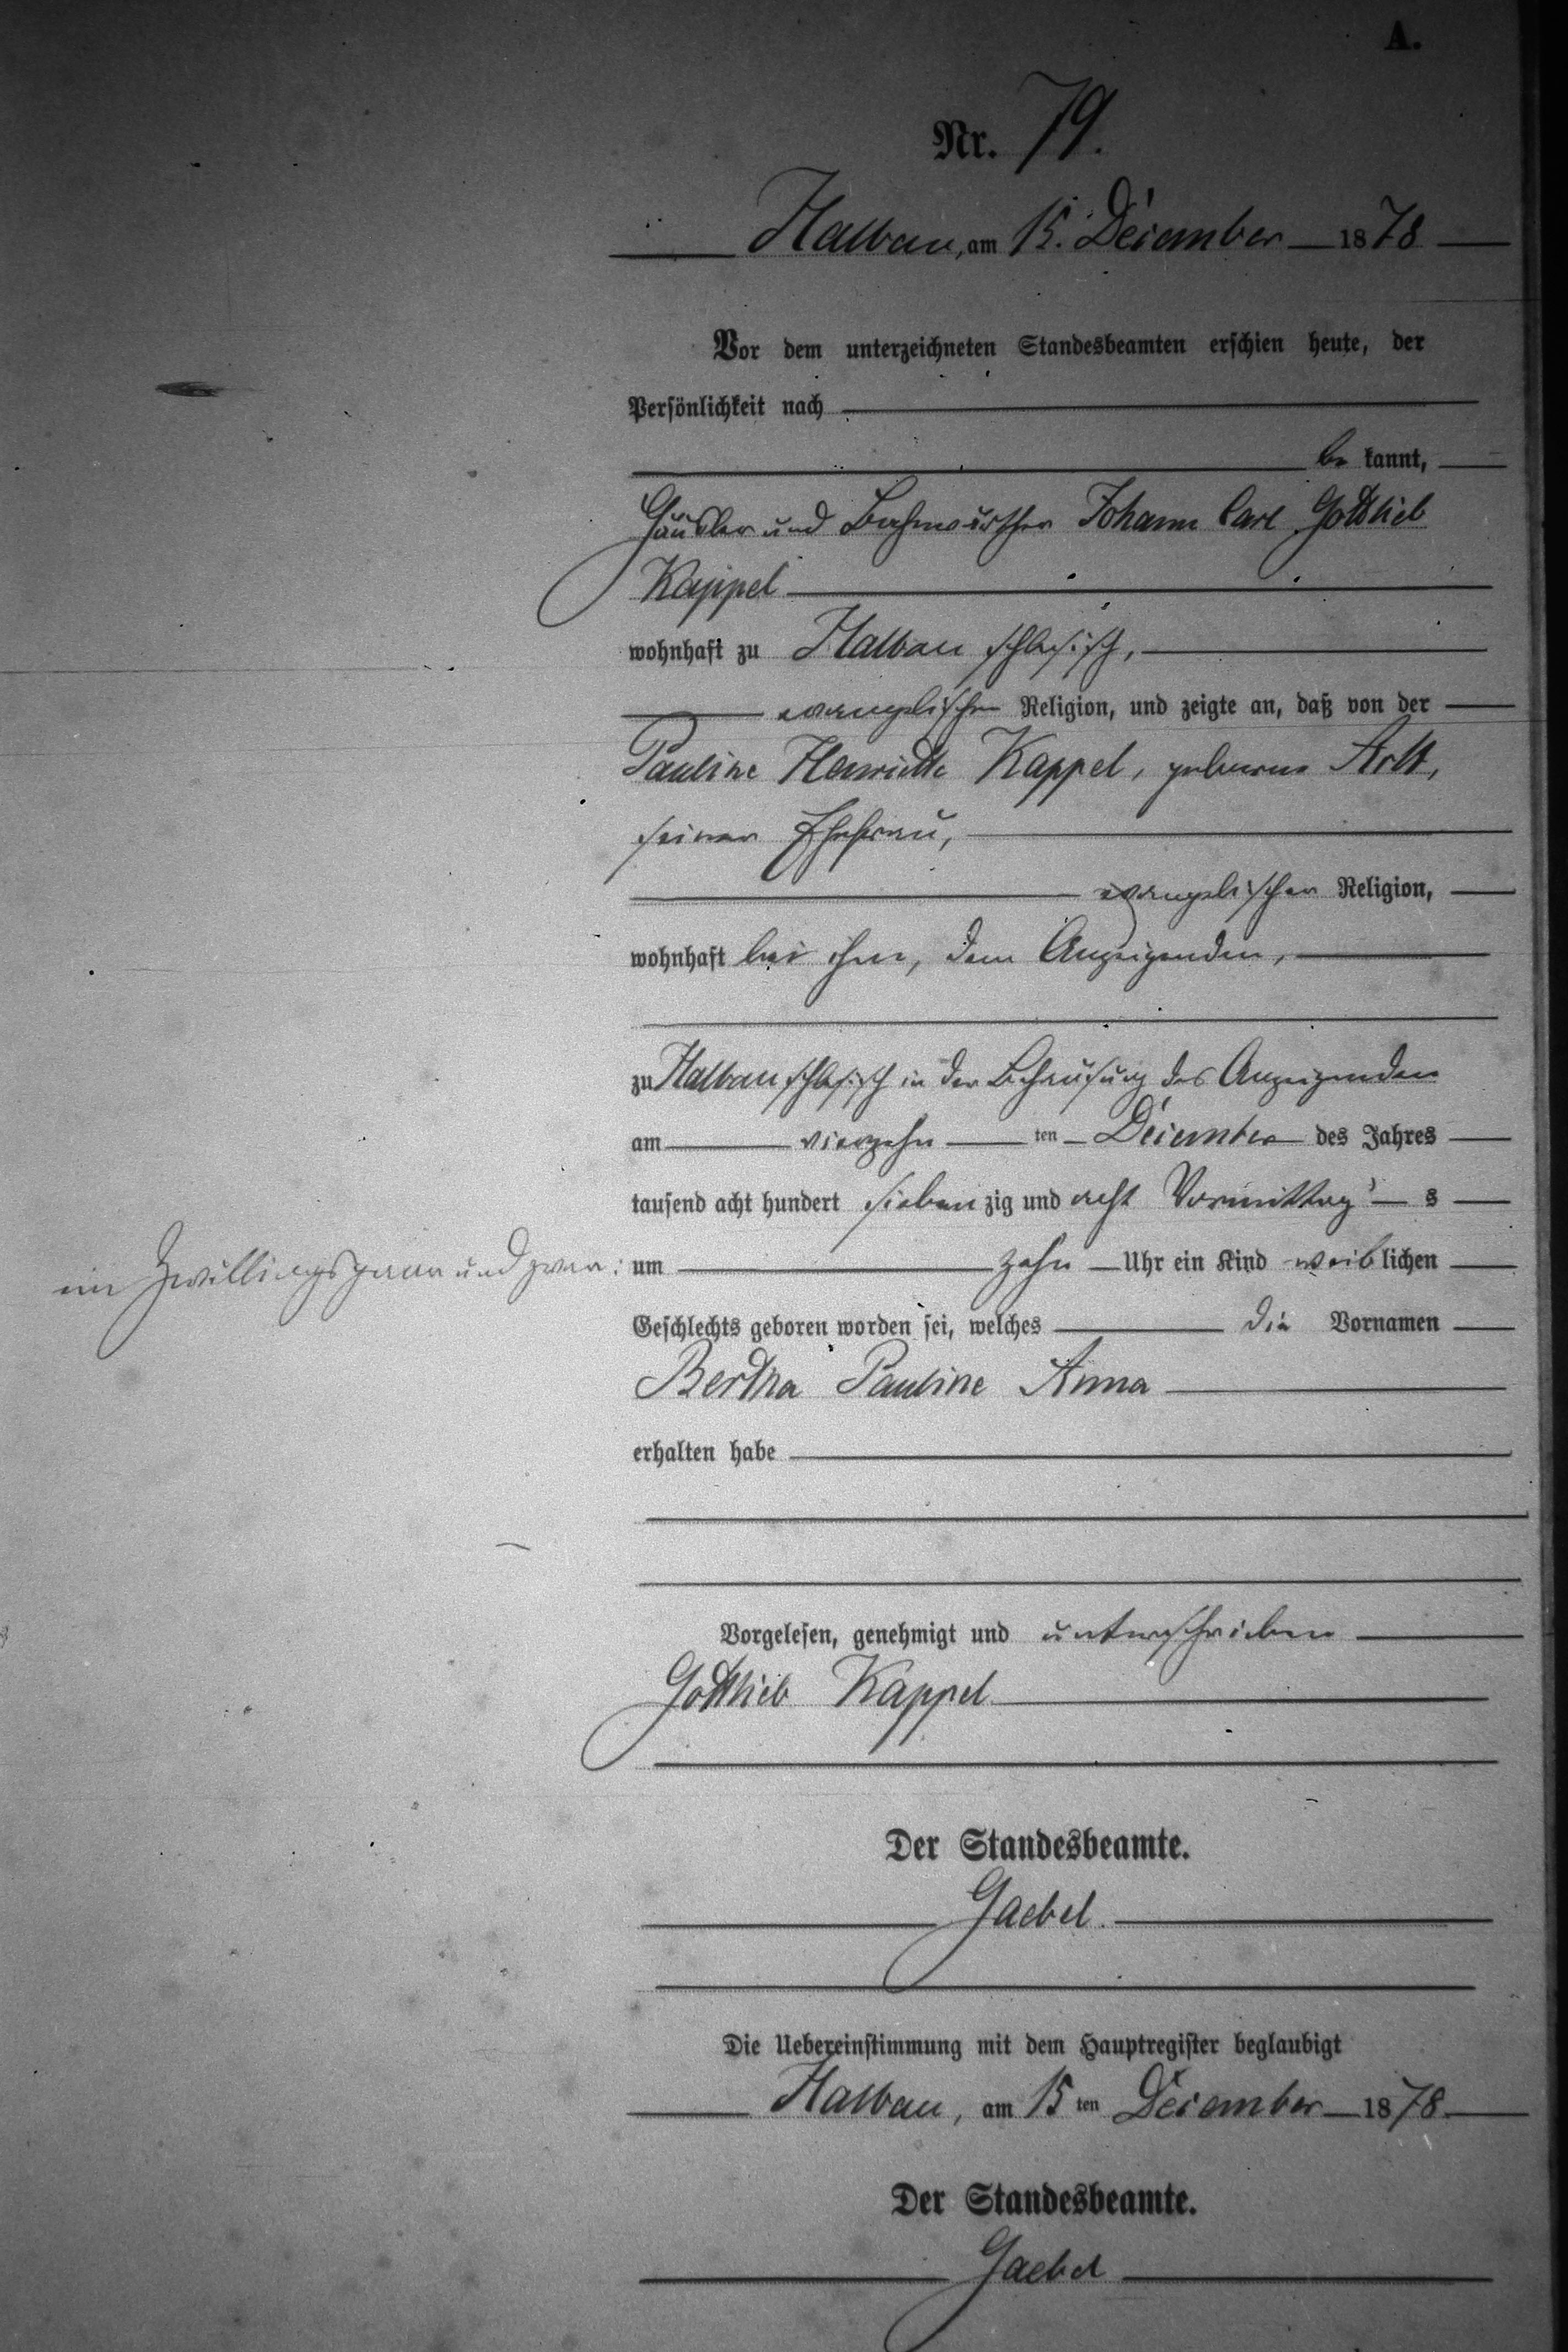 A.
Nr. 79.
Halbau, am 15. December 1878
Vor dem unterzeichneten Standesbeamten erschien heute, der
Persönlichkeit nach
be kannt,
Häusler und Bahnwärther Johann Carl Gottlieb
Kappel
wohnhaft zu Halbau schlesisch,
evangelischer Religion, und zeigte an, daß von der
Pauline Henriette Kappel, geborene Arlt,
seiner Ehefrau,
evangelischer Religion,
wohnhaft bei ihm, dem Anzeigenden,
zu Halbau schlesisch in der Behausung des Anzeigenden
am vierzehn ten December des Jahres
tausend acht hundert sieben zig und acht Vormittag s
um zehn Uhr ein Kind weib lichen
ein Zwillingspaar und zwar:
Geschlechts geboren worden sei, welches die Vornamen
Bertha Pauline Anna
erhalten habe
Vorgelesen, genehmigt und unterschrieben
Gottlieb Kappel
Der Standesbeamte.
Gaebel.
Die Uebereinstimmung mit dem Hauptregister beglaubigt
Halbau, am 15 ten December 1878.
Der Standesbeamte.
Gaebel